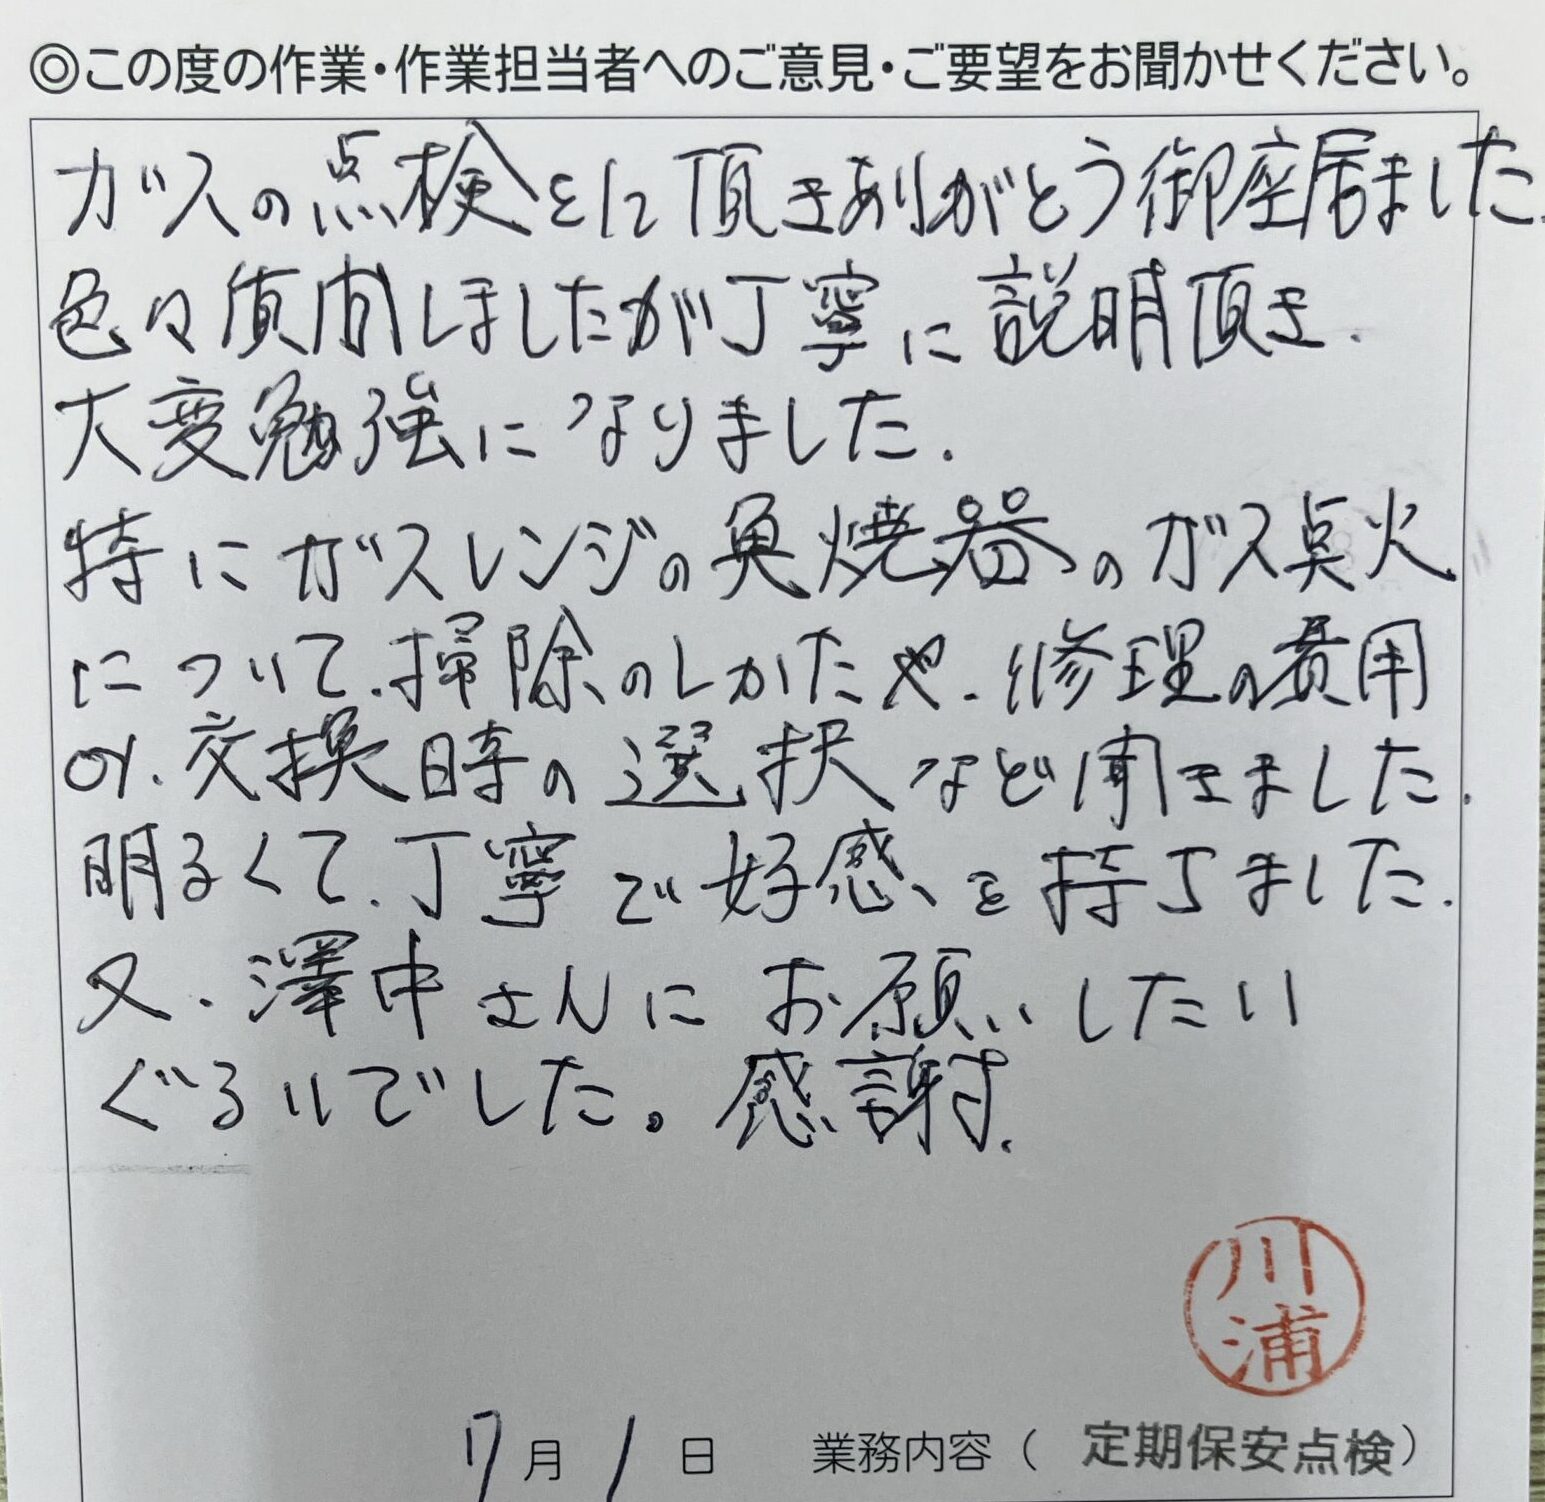 ◎この度の作業・作業担当者へのご意見・ご要望をお聞かせください。
ガスの点検をして頂きありがとう御座居ました.
色々質問しましたが丁寧に説明頂き.
大変勉強になりました.
特にガスレンジの魚焼器のガス点火
について.掃除のしかたや.修理の費用
や.交換時の選択など聞きました.
明るくて.丁寧で好感を持てました.
又.澤中さんにお願いしたい
ぐるいでした。感謝.
川浦
7月1日 業務内容(定期保安点検)